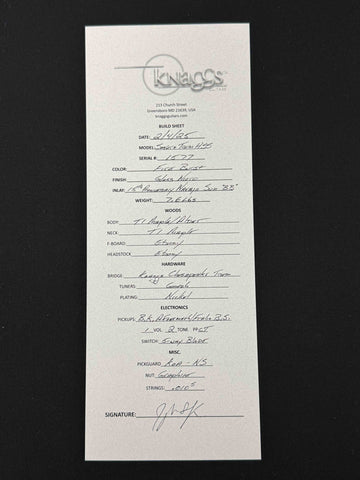 KNAGGS
GUITARS
213 Church Street
Greensboro MD 21639, USA
knaggsguitars.com
BUILD SHEET
DATE: 2/4/25
MODEL: Severn Trem HSS
SERIAL #: 1577
COLOR: Fire Burst
FINISH: Gloss Nitro
INLAY: 15th Anniversary Navajo Sun "B.B"
WEIGHT: 7.6 Lbs
WOODS
BODY: T1 Maple/Alder
NECK: T1 Maple
F-BOARD: Ebony
HEADSTOCK: Ebony
HARDWARE
BRIDGE: Knaggs Chesapeake Trem
TUNERS: Gotoh
PLATING: Nickel
ELECTRONICS
PICKUPS: B.K. Aftermath/Fralin B.S.
1 VOL. 2 TONE. PP CT
SWITCH: 5 way Blade
MISC.
PICKGUARD: Koa - NS
NUT: Graphite
STRINGS: .010s
SIGNATURE: